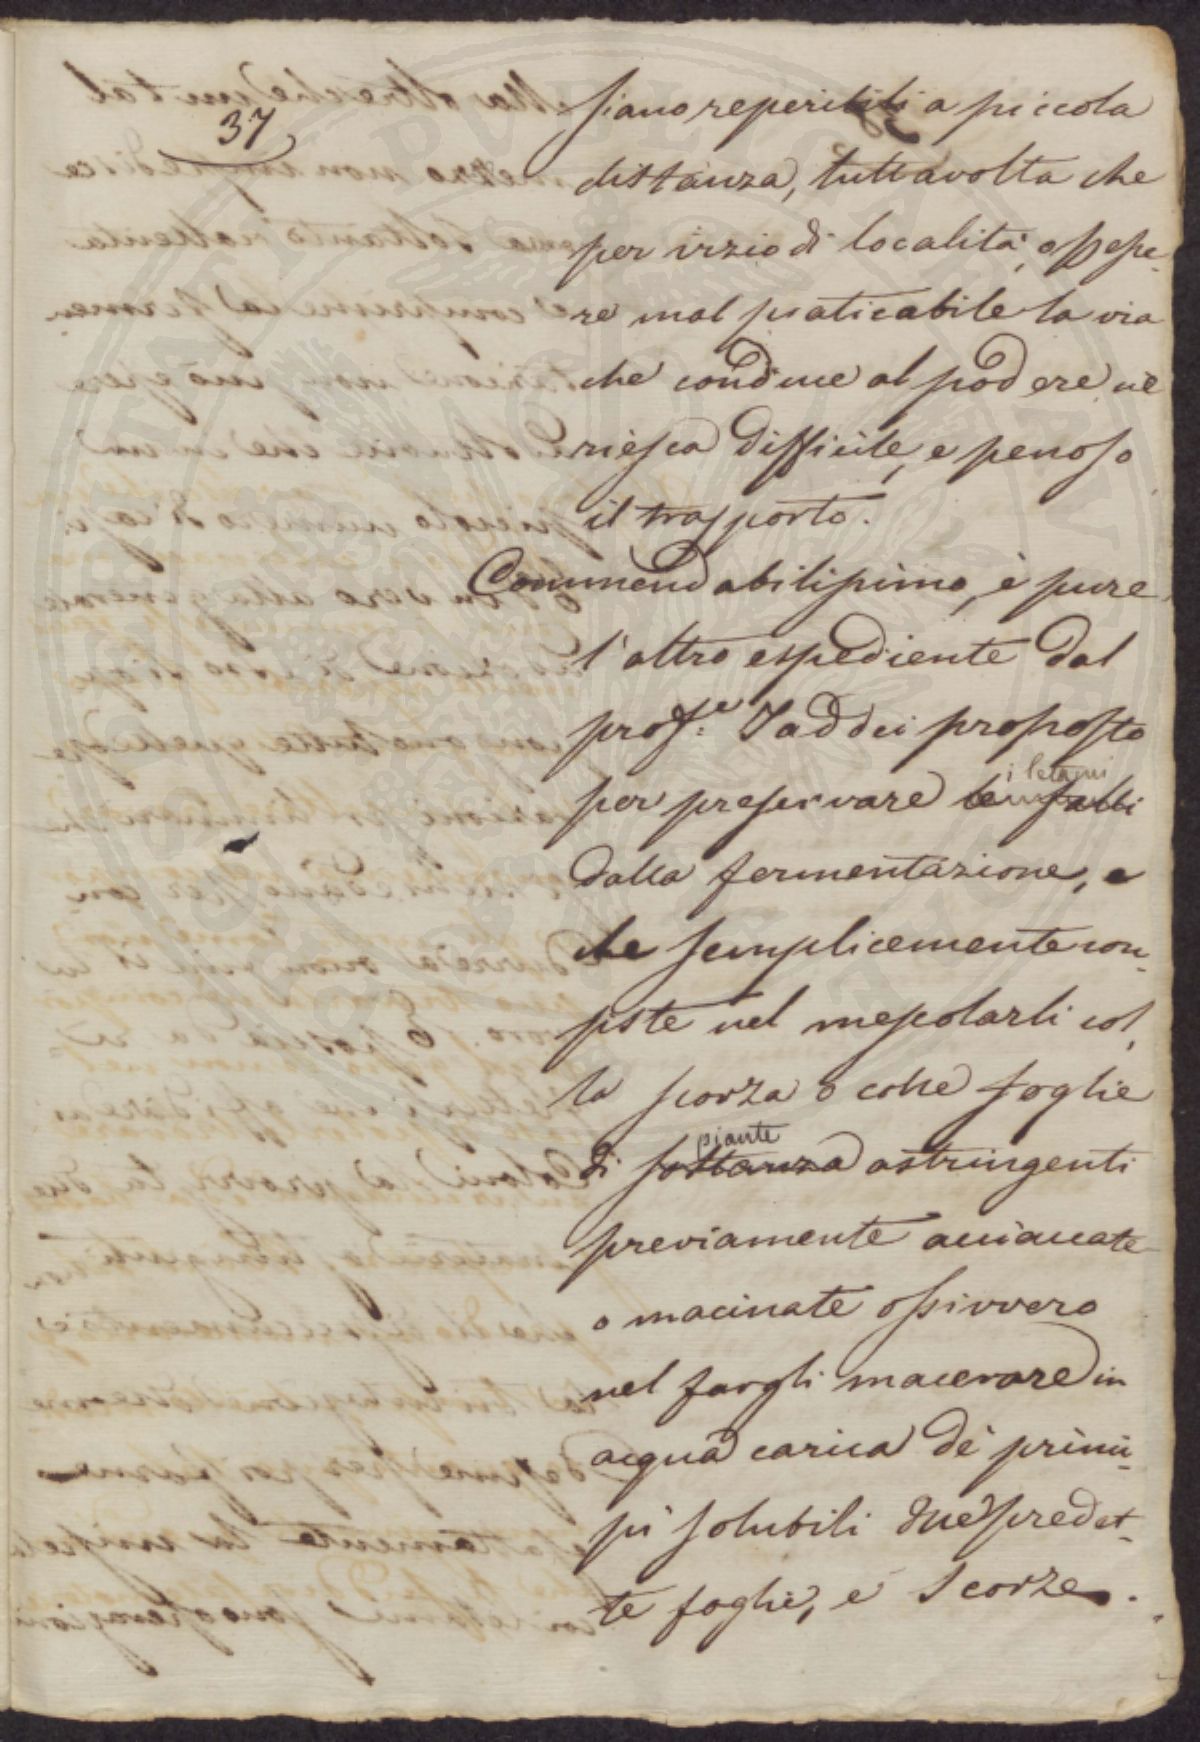 37
siano reperibili a piccola
distanza, tuttavolta che
per vizio di località, o esse-
re mal praticabile la via
che conduce al podere, ne
riesca difficile, e penoso
il trasporto.
Commendabilissimo, è pure
l'altro espediente dal
prof.e Taddei proposto
i letami
per preservare le
dalla fermentazione, e
che semplicemente con-
siste nel mescolarli col-
la scorza o colle foglie
piante
di sostanza astringenti
previamente acciaccate
o macinate ossivvero
nel fargli macerare in
acqua carica de' princi-
pi solubili due predet-
te foglie, e scorze.